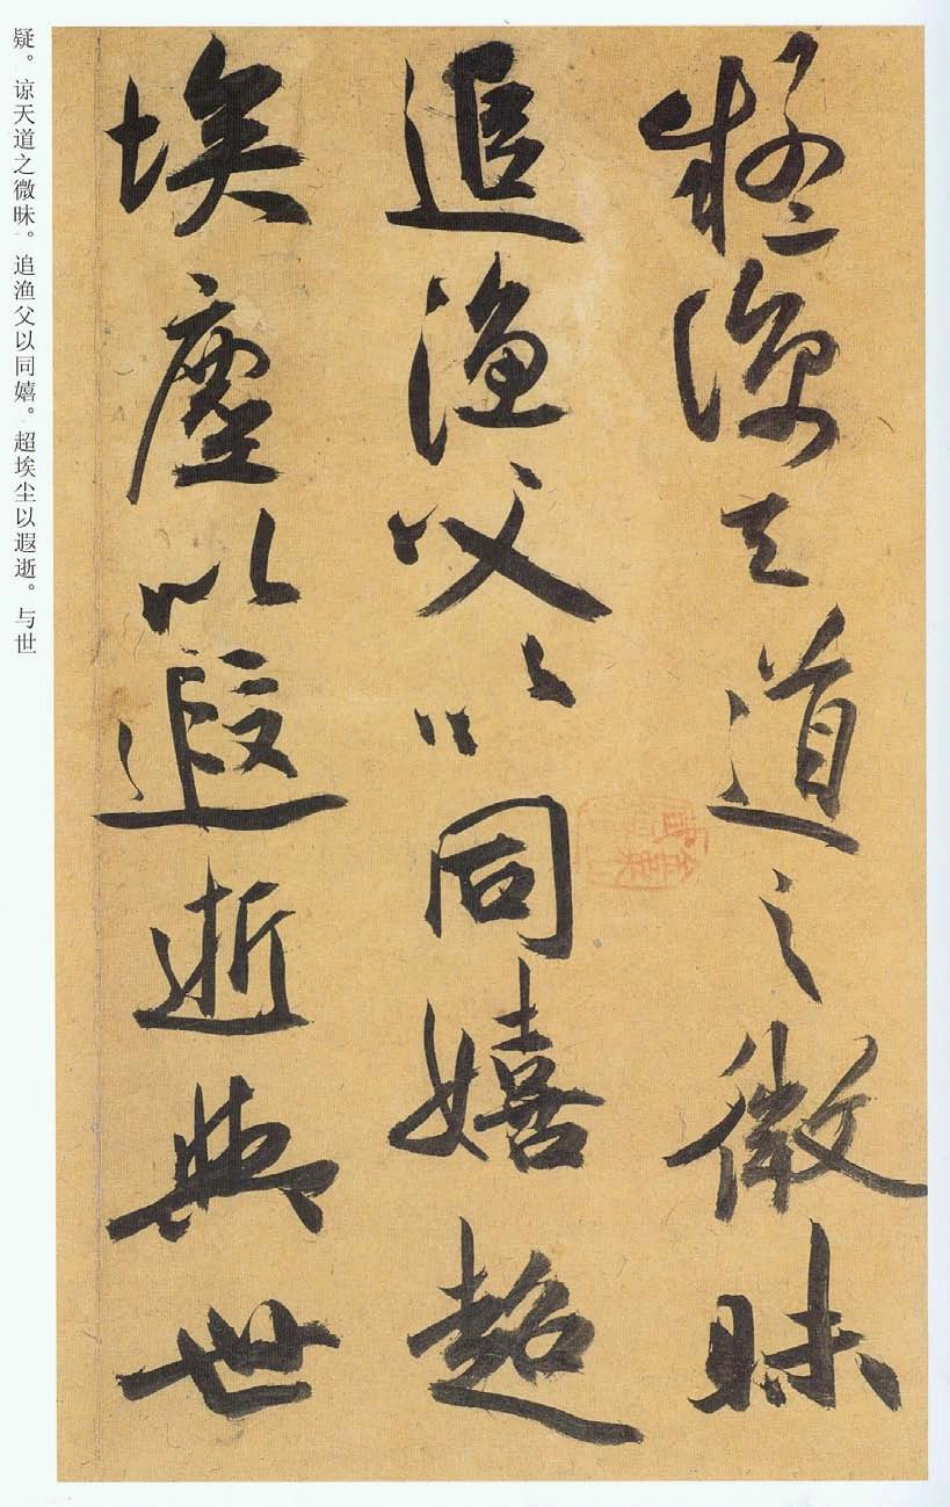 疑谅天道之微昧
追渔父以同嬉超
埃尘以遐逝与世
疑。谅天道之微昧。追渔父以同嬉。超埃尘以遐逝。与世